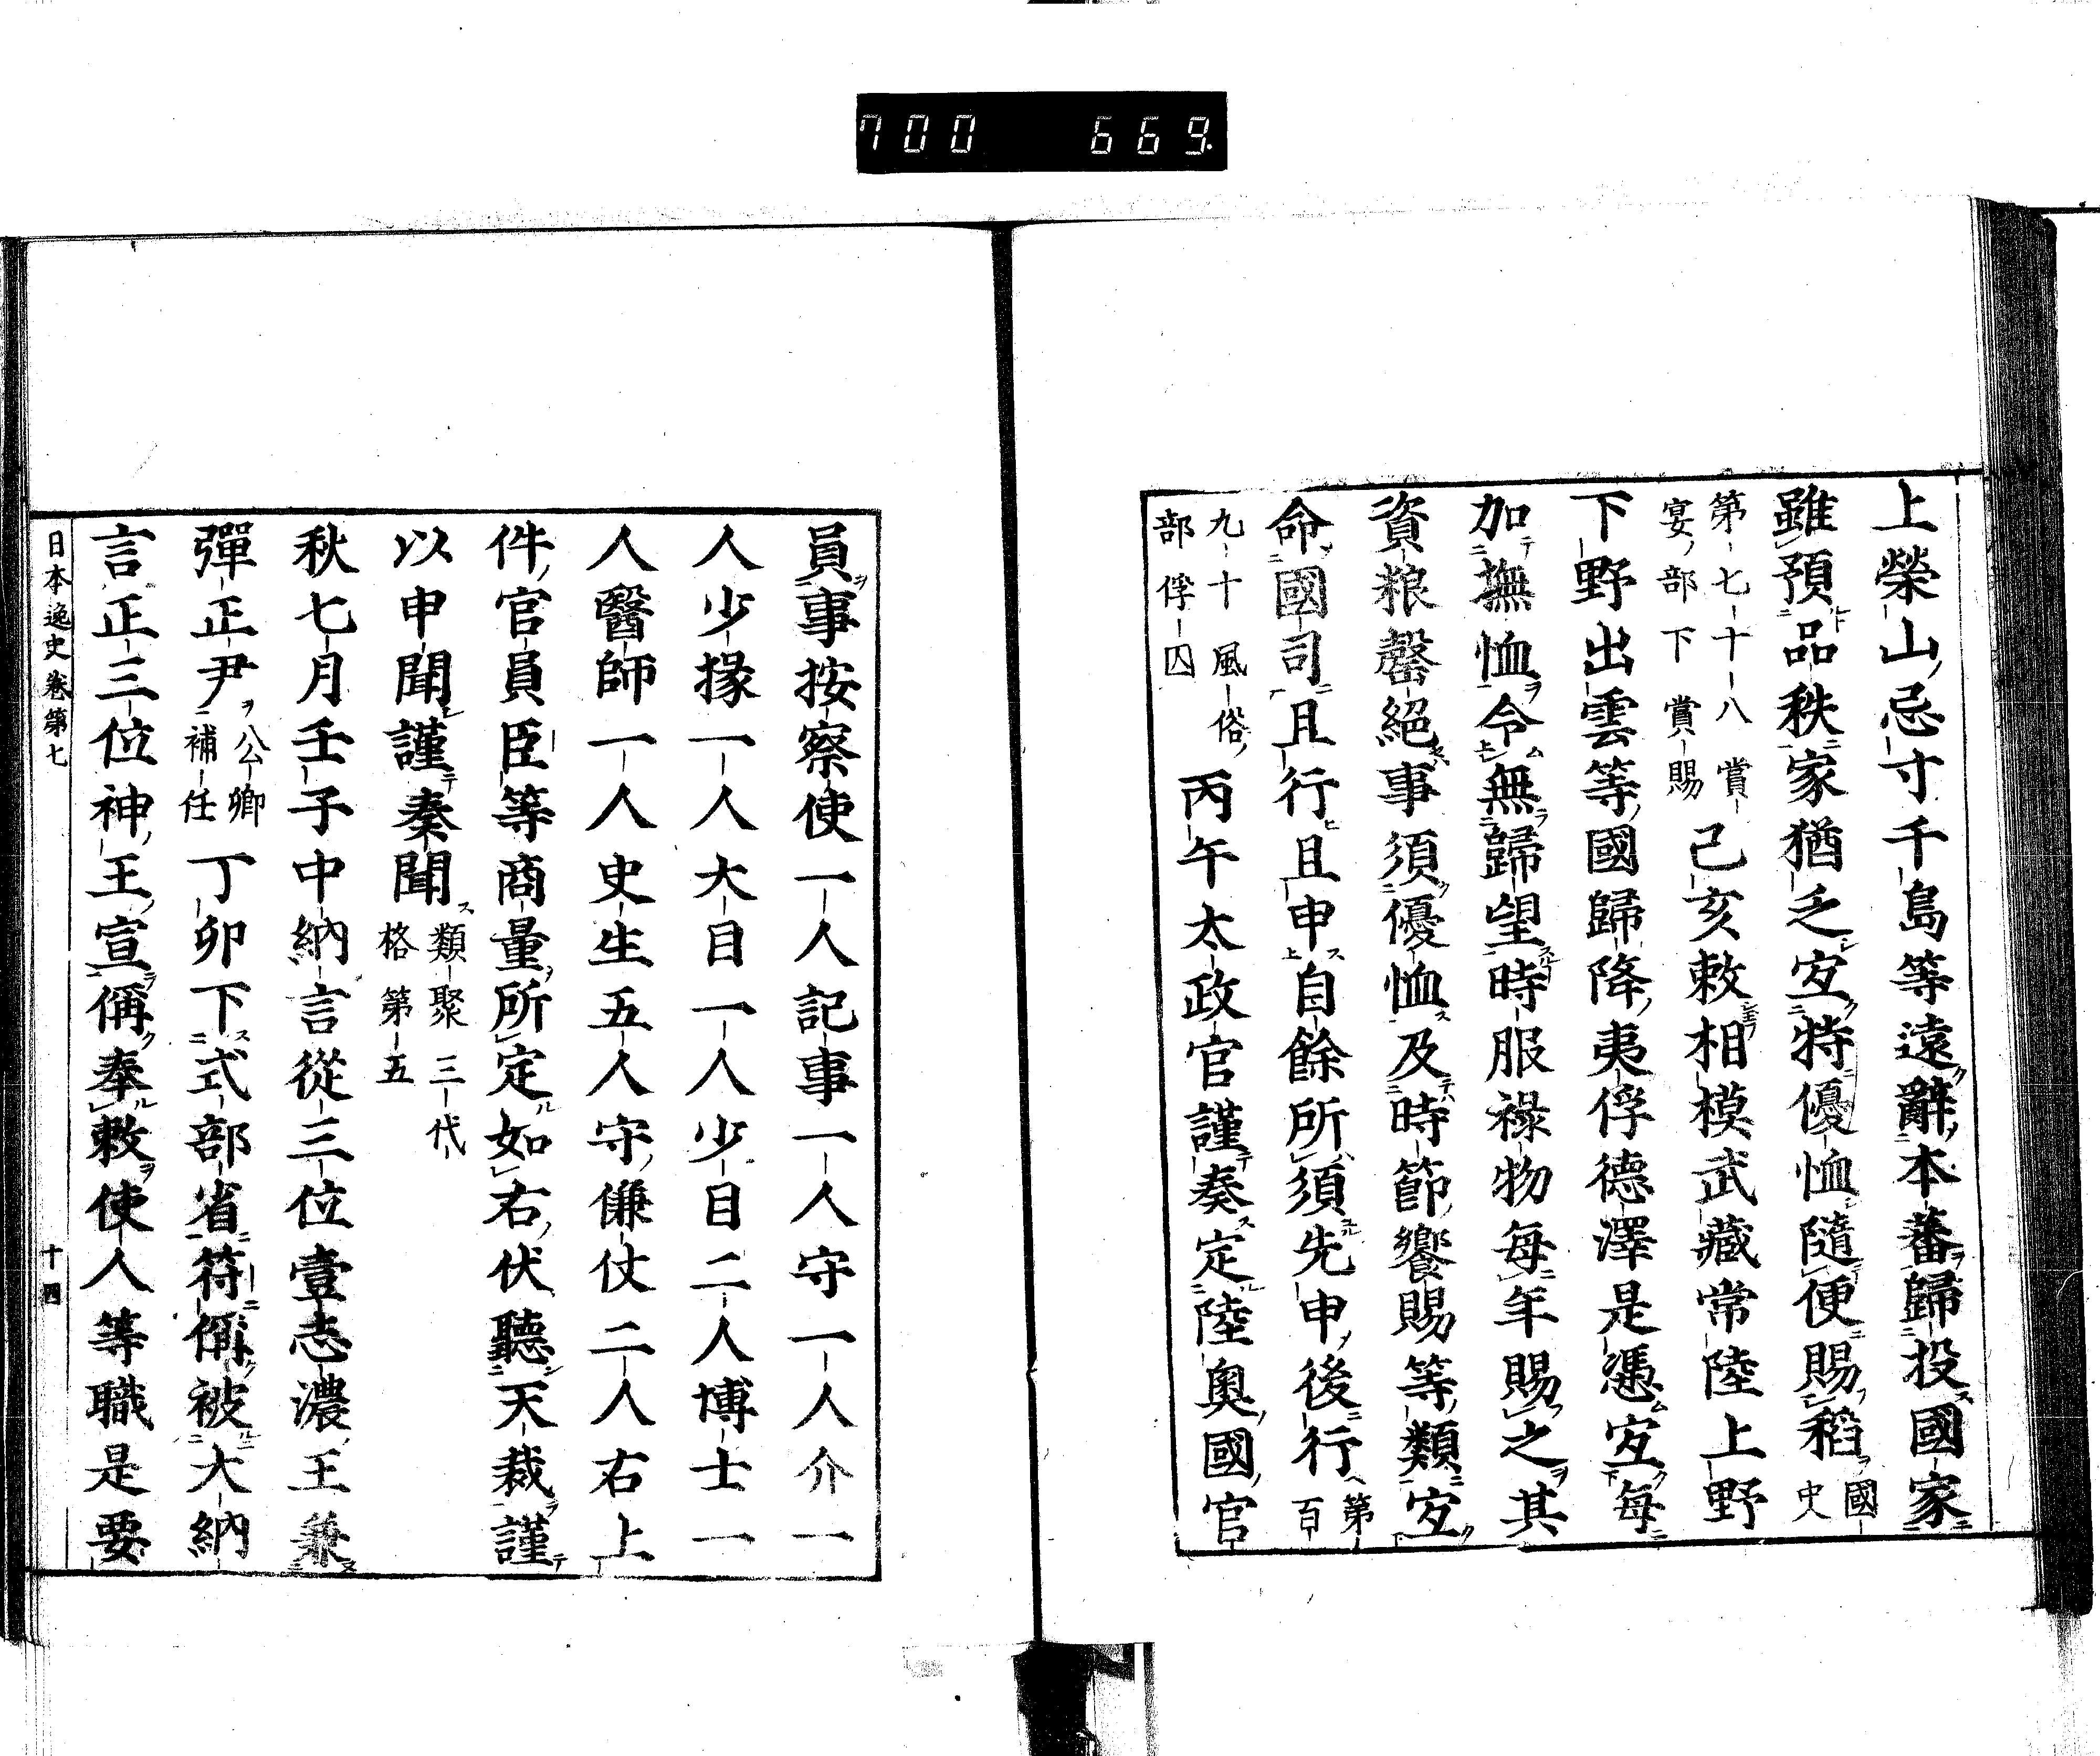 700 669.
上榮山忌寸千島等遠辭本蕃歸投國家
雖預品秩家猶乏宜特優恤隨便賜稻國史
第七十八賞宴部下賞賜己亥敕相模武藏常陸上野
下野出雲等國歸降夷俘德澤是憑宜每
加撫恤令無歸望時服祿物每年賜之其
資粮罄絕事須優恤及時節饗賜等類宜
命國司且行且申自餘所須先申後行第百
九十風俗部俘囚丙午太政官謹奏定陸奧國官
員事按察使一人記事一人守一人介一
人少掾一人大目一人少目二人博士一
人醫師一人史生五人守傔仗二人右上
件官員臣等商量所定如右伏聽天裁謹
以申聞謹奏聞類聚三代格第五
秋七月壬子中納言從三位壹志濃王兼
彈正尹公卿補任丁卯下式部省符偁被大納
言正三位神王宣偁奉敕使人等職是要
日本逸史卷第七 十四